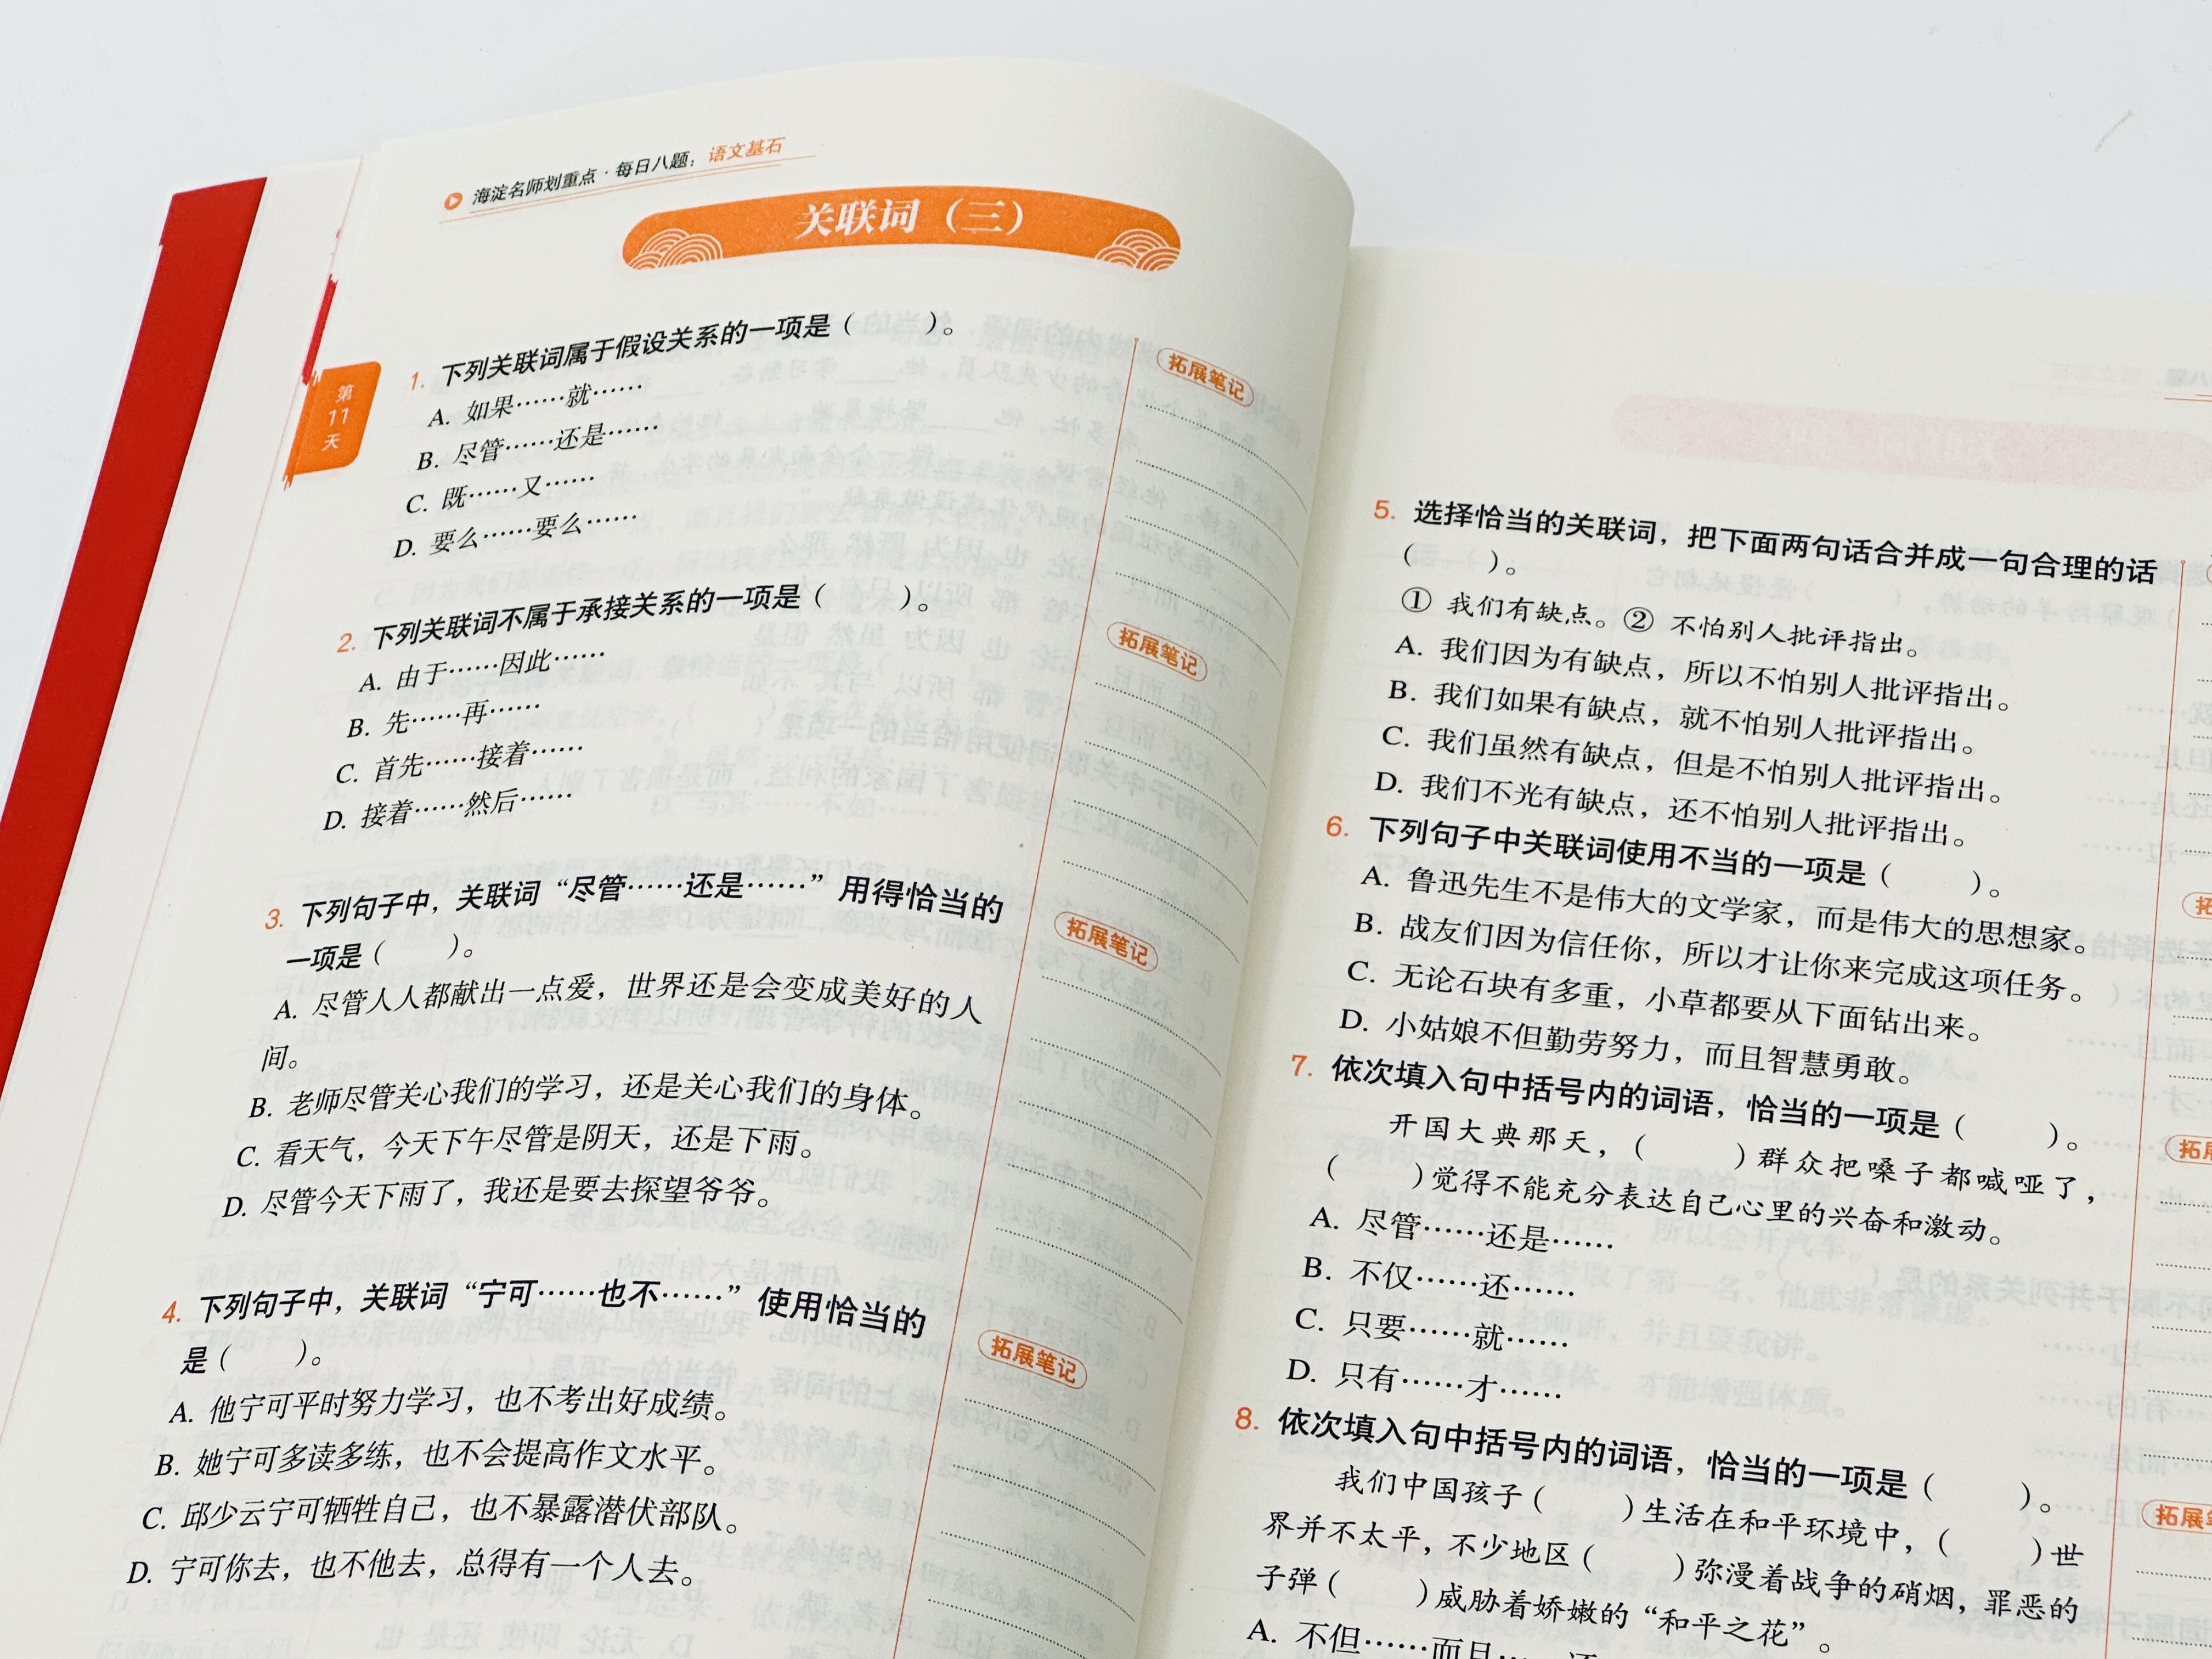 海淀名师划重点·每日八题：语文基石
关联词（三）
第
11
天
1. 下列关联词属于假设关系的一项是（　　）。
A. 如果……就……
B. 尽管……还是……
C. 既……又……
D. 要么……要么……
拓展笔记
2. 下列关联词不属于承接关系的一项是（　　）。
A. 由于……因此……
B. 先……再……
C. 首先……接着……
D. 接着……然后……
拓展笔记
3. 下列句子中，关联词“尽管……还是……”用得恰当的
一项是（　　）。
A. 尽管人人都献出一点爱，世界还是会变成美好的人
间。
B. 老师尽管关心我们的学习，还是关心我们的身体。
C. 看天气，今天下午尽管是阴天，还是下雨。
D. 尽管今天下雨了，我还是要去探望爷爷。
拓展笔记
4. 下列句子中，关联词“宁可……也不……”使用恰当的
是（　　）。
A. 他宁可平时努力学习，也不考出好成绩。
B. 她宁可多读多练，也不会提高作文水平。
C. 邱少云宁可牺牲自己，也不暴露潜伏部队。
D. 宁可你去，也不他去，总得有一个人去。
拓展笔记
5. 选择恰当的关联词，把下面两句话合并成一句合理的话
（　　）。
① 我们有缺点。② 不怕别人批评指出。
A. 我们因为有缺点，所以不怕别人批评指出。
B. 我们如果有缺点，就不怕别人批评指出。
C. 我们虽然有缺点，但是不怕别人批评指出。
D. 我们不光有缺点，还不怕别人批评指出。
6. 下列句子中关联词使用不当的一项是（　　）。
A. 鲁迅先生不是伟大的文学家，而是伟大的思想家。
B. 战友们因为信任你，所以才让你来完成这项任务。
C. 无论石块有多重，小草都要从下面钻出来。
D. 小姑娘不但勤劳努力，而且智慧勇敢。
拓
7. 依次填入句中括号内的词语，恰当的一项是（　　）。
开国大典那天，（　　）群众把嗓子都喊哑了，
（　　）觉得不能充分表达自己心里的兴奋和激动。
A. 尽管……还是……
B. 不仅……还……
C. 只要……就……
D. 只有……才……
拓展
8. 依次填入句中括号内的词语，恰当的一项是（　　）。
我们中国孩子（　　）生活在和平环境中，（　　）世
界并不太平，不少地区（　　）弥漫着战争的硝烟，罪恶的
子弹（　　）威胁着娇嫩的“和平之花”。
A. 不但……而且……还
拓展笔